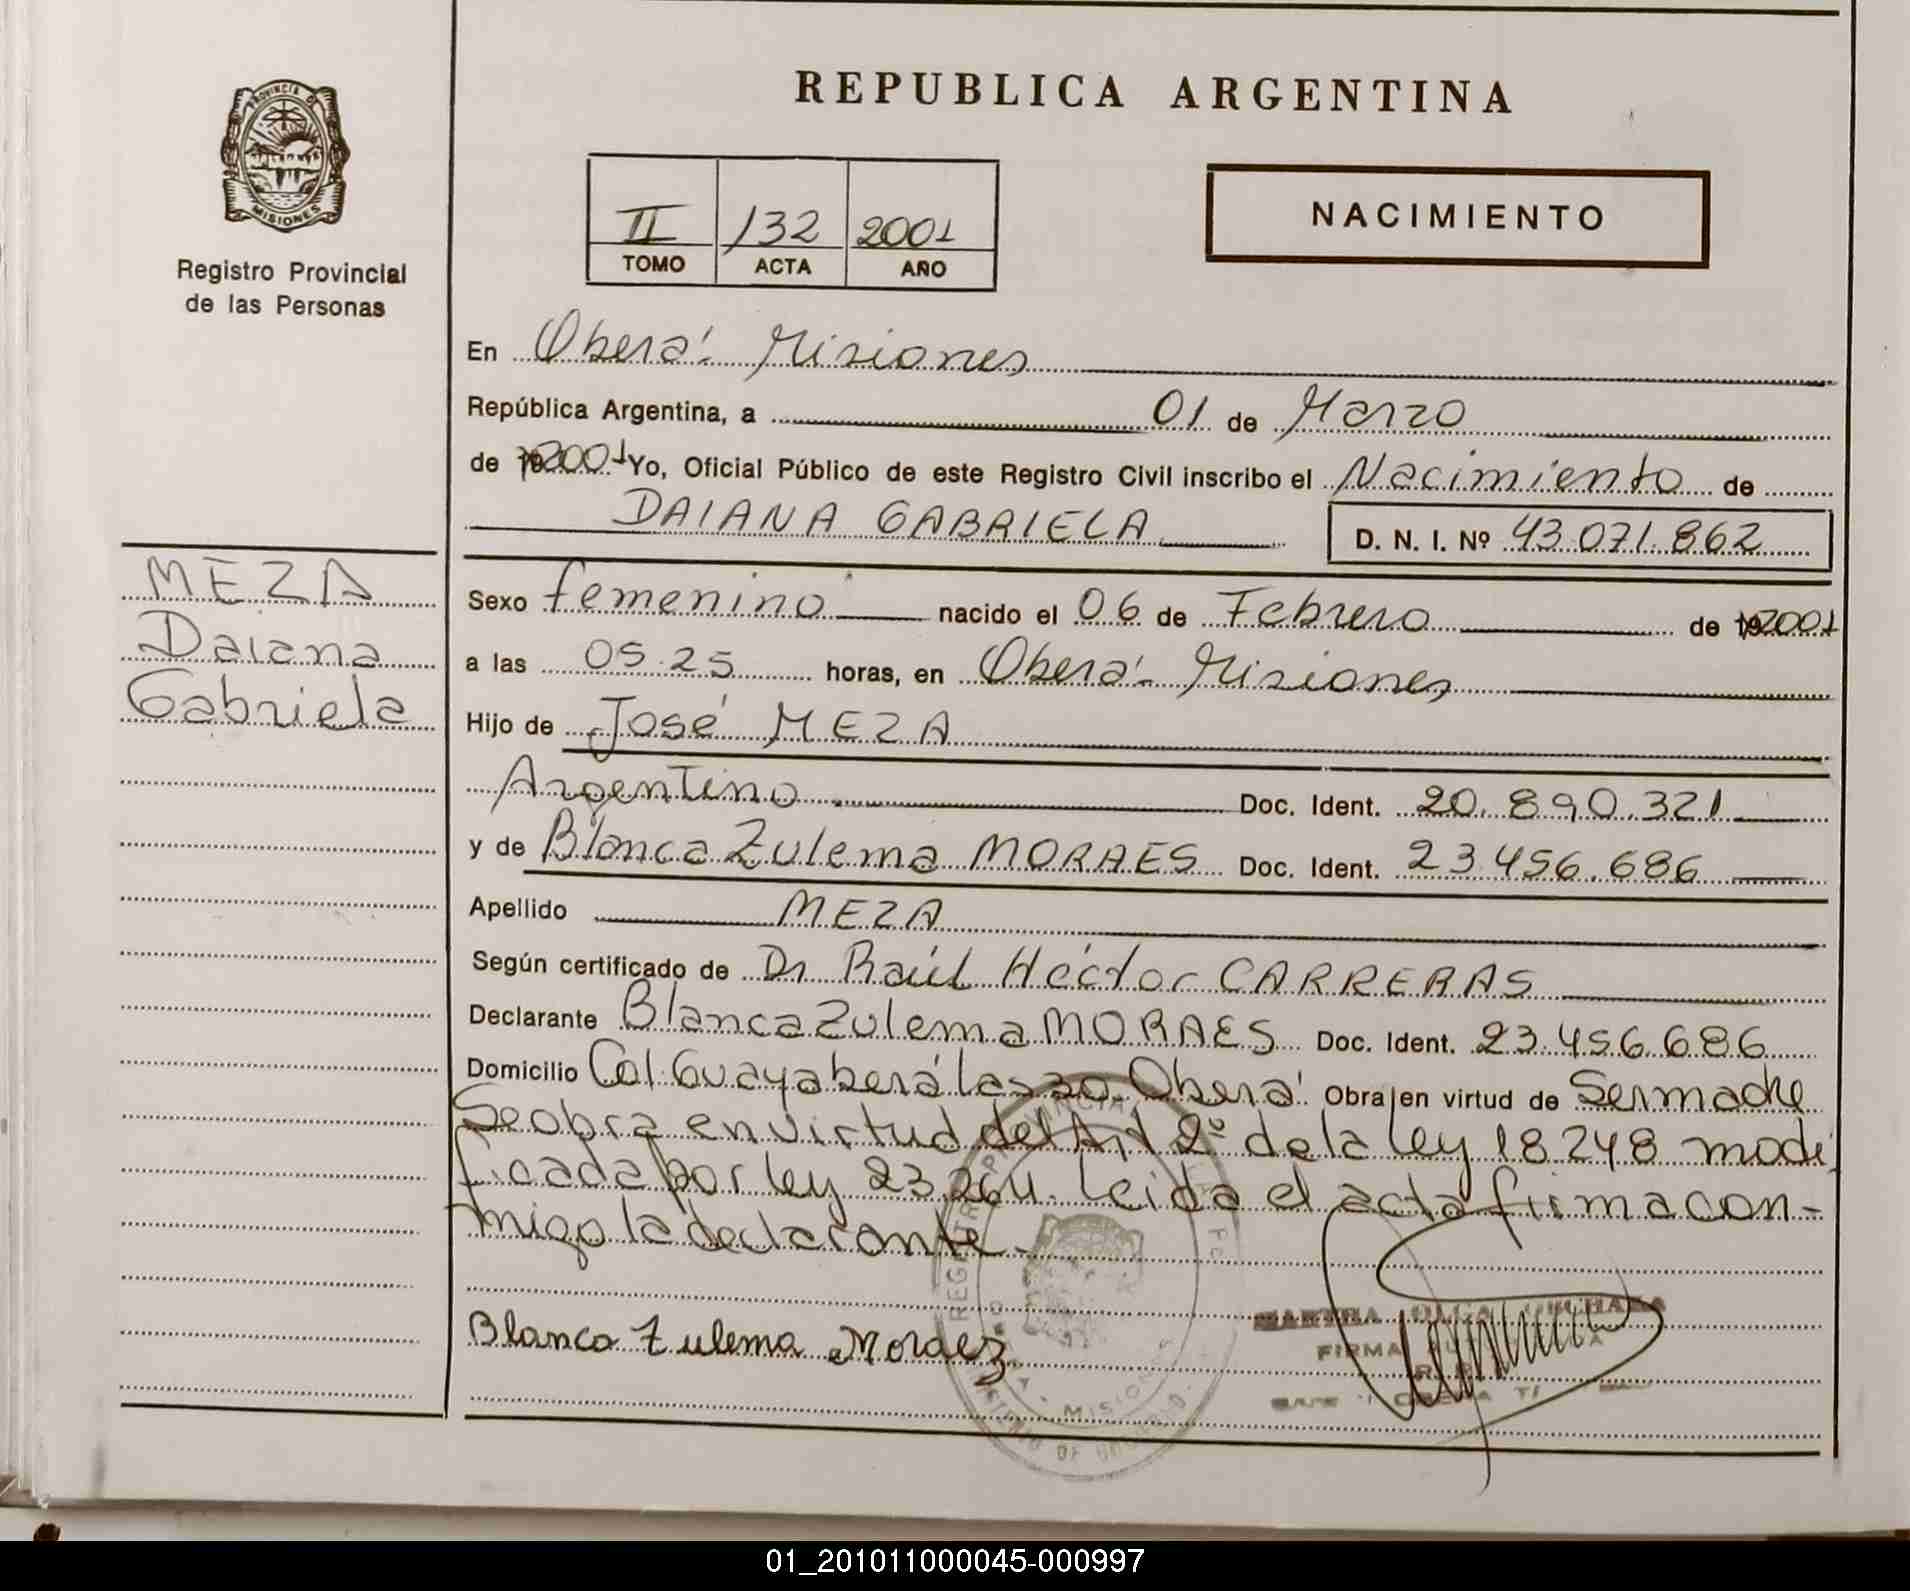 REPUBLICA ARGENTINA
PROVINCIA DE
MISIONES
Registro Provincial
de las Personas
II 132 2001
TOMO ACTA AÑO
NACIMIENTO
En Oberá - Misiones
República Argentina, a 01 de Marzo
de 19 2001 Yo, Oficial Público de este Registro Civil inscribo el Nacimiento de
DAIANA GABRIELA D. N. I. Nº 43.071.862
MEZA
Daiana
Gabriela
Sexo femenino nacido el 06 de Febrero de 19 2001
a las 05.25 horas, en Oberá - Misiones
Hijo de José MEZA
Argentino Doc. Ident. 20.890.321
y de Blanca Zulema MORAES Doc. Ident. 23.456.686
Apellido MEZA
Según certificado de Dr. Raúl Héctor CARRERAS
Declarante Blanca Zulema MORAES Doc. Ident. 23.456.686
Domicilio Col. Guayaberá Oberá Obra en virtud de Ser madre
Se obra en virtud del Art 2º de la ley 18.248 modi
ficada por ley 23.264. Leida el acta firma con-
migo la declarante.-
Blanca Zulema Moraez
MARTHA OLGA
FIRMA
MISIONES
01_201011000045-000997